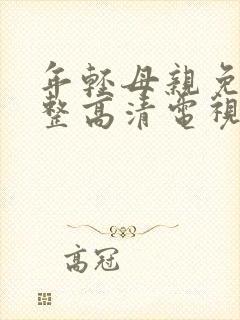 年輕母親免
整高清電視
高冠